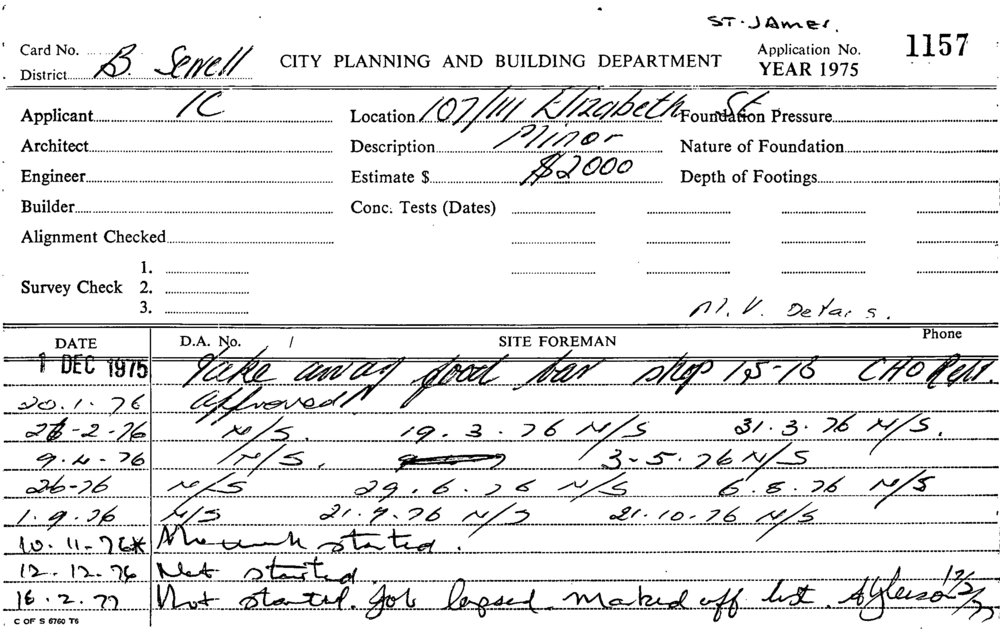 ST. JAMES.
Card No. B. Sewell
District
CITY PLANNING AND BUILDING DEPARTMENT
Application No. 1157
YEAR 1975
Applicant IC
Location 107/111 Elizabeth St.
Foundation Pressure
Architect
Description Minor
Nature of Foundation
Engineer
Estimate $ $2000
Depth of Footings
Builder
Conc. Tests (Dates)
Alignment Checked
1.
Survey Check 2.
3.
M.V. Details.
DATE D.A. No. / SITE FOREMAN Phone
1 DEC 1975 Take away food bar shop 15-16 CHO Rept.
20.1.76 Approved
-2-76 N/S. 19.3.76 N/S 31.3.76 N/S.
9.4.76 N/S. 3-5.76 N/S
26-76 N/S 29.6.76 N/S 6.8.76 N/S
1.9.76 N/S 21.9.76 N/S 21.10.76 N/S
10.11-76* No work started.
12.12.76 Not started
16.2.77 Not started. Job lapsed. Marked off list.
C OF S 6760 T6